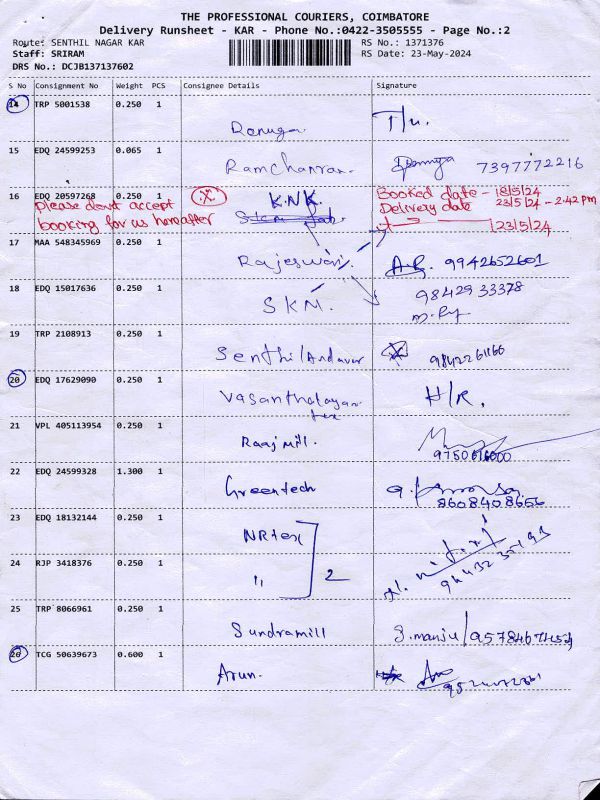 THE PROFESSIONAL COURIERS, COIMBATORE
Delivery Runsheet - KAR - Phone No.:0422-3505555 - Page No.:2
Route: SENTHIL NAGAR KAR
RS No.: 1371376
Staff: SRIRAM
RS Date: 23-May-2024
DRS No.: DCJB137137602
S No Consignment No Weight PCS Consignee Details Signature
14 TRP 5001538 0.250 1
Renuga T/u.
15 EDQ 24599253 0.065 1
Ramchanran 7397772216
16 EDQ 20597268 0.250 1 K.N.K. Booked date - 18/5/24
Please dont accept Delivery date 23/5/24 - 2.42 pm
booking for us hereafter 23/5/24
17 MAA 548345969 0.250 1
Rajeswari 9942652601
18 EDQ 15017636 0.250 1
SKM. 98429 33378
19 TRP 2108913 0.250 1
Senthil Andavar 9842261166
20 EDQ 17629090 0.250 1
Vasanthalayan tex H/R.
21 VPL 405113954 0.250 1
Raajmill.
22 EDQ 24599328 1.300 1
Greentech 8608408656
23 EDQ 18132144 0.250 1
NRtex
24 RJP 3418376 0.250 1
" 2
25 TRP 8066961 0.250 1
Sundramill S.manju/
26 TCG 50639673 0.600 1
Arun.